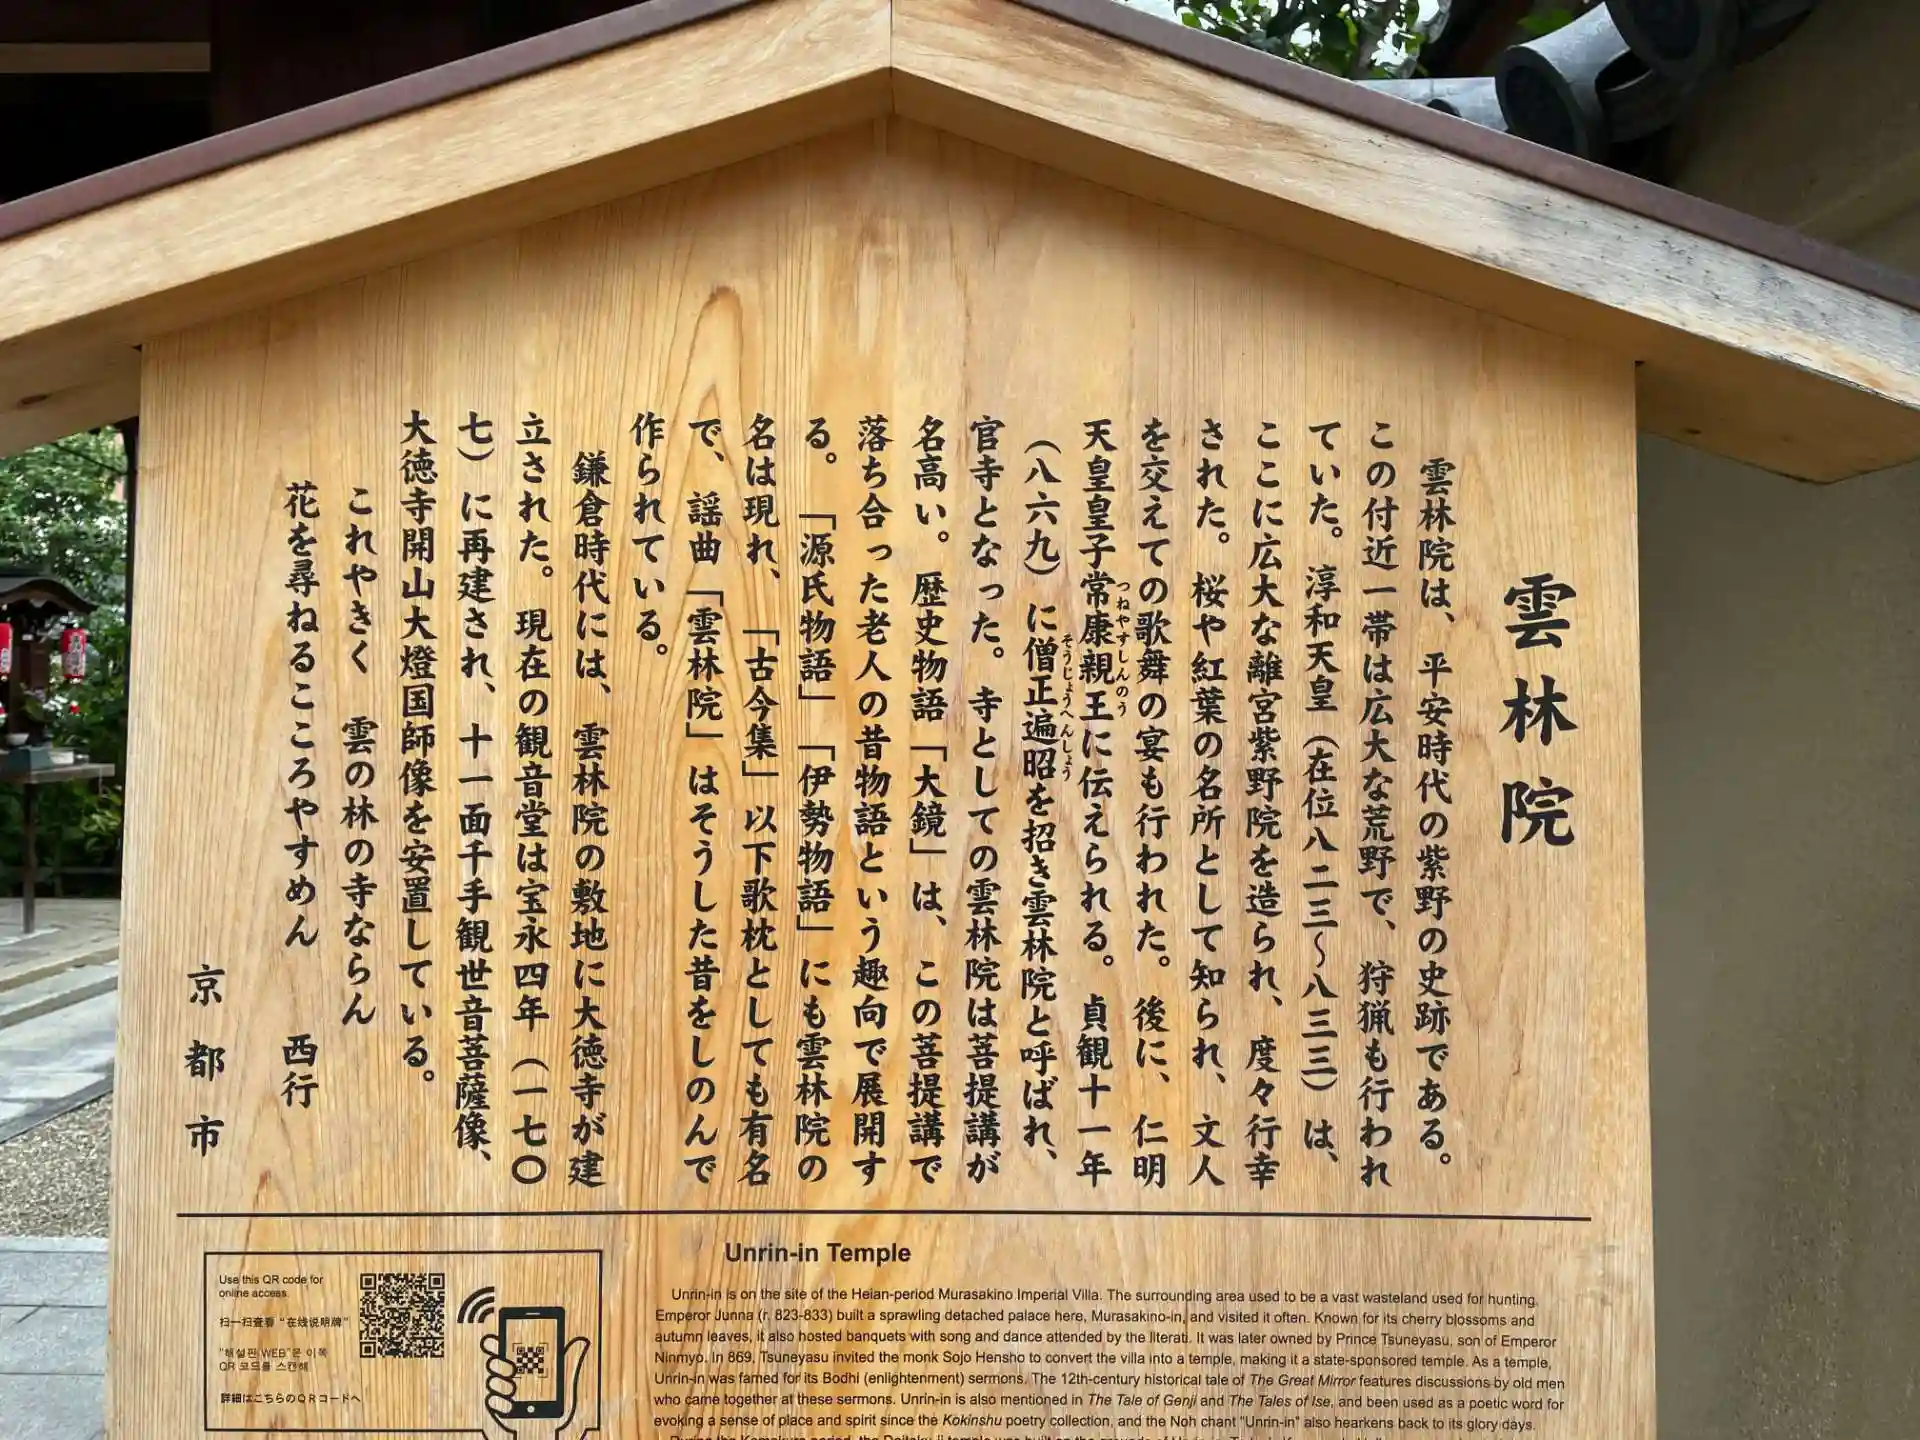 雲林院
雲林院は、平安時代の紫野の史跡である。
この付近一帯は広大な荒野で、狩猟も行われ
ていた。淳和天皇（在位八二三～八三三）は、
ここに広大な離宮紫野院を造られ、度々行幸
された。桜や紅葉の名所として知られ、文人
を交えての歌舞の宴も行われた。後に、仁明
天皇皇子常康親王に伝えられる。貞観十一年
つねやすしんのう
（八六九）に僧正遍昭を招き雲林院と呼ばれ、
そうじょうへんしょう
官寺となった。寺としての雲林院は菩提講が
名高い。歴史物語「大鏡」は、この菩提講で
落ち合った老人の昔物語という趣向で展開す
る。「源氏物語」「伊勢物語」にも雲林院の
名は現れ、「古今集」以下歌枕としても有名
で、謡曲「雲林院」はそうした昔をしのんで
作られている。
鎌倉時代には、雲林院の敷地に大徳寺が建
立された。現在の観音堂は宝永四年（一七〇
七）に再建され、十一面千手観世音菩薩像、
大徳寺開山大燈国師像を安置している。
これやきく 雲の林の寺ならん
花を尋ねるこころやすめん 西行
京都市
Use this QR code for
online access.
扫一扫查看“在线说明牌”
"해설판 WEB"은 이쪽
QR 코드를 스캔해
詳細はこちらのQRコードへ
Unrin-in Temple
Unrin-in is on the site of the Heian-period Murasakino Imperial Villa. The surrounding area used to be a vast wasteland used for hunting.
Emperor Junna (r. 823-833) built a sprawling detached palace here, Murasakino-in, and visited it often. Known for its cherry blossoms and
autumn leaves, it also hosted banquets with song and dance attended by the literati. It was later owned by Prince Tsuneyasu, son of Emperor
Ninmyo. In 869, Tsuneyasu invited the monk Sojo Hensho to convert the villa into a temple, making it a state-sponsored temple. As a temple,
Unrin-in was famed for its Bodhi (enlightenment) sermons. The 12th-century historical tale of The Great Mirror features discussions by old men
who came together at these sermons. Unrin-in is also mentioned in The Tale of Genji and The Tales of Ise, and been used as a poetic word for
evoking a sense of place and spirit since the Kokinshu poetry collection, and the Noh chant "Unrin-in" also hearkens back to its glory days.